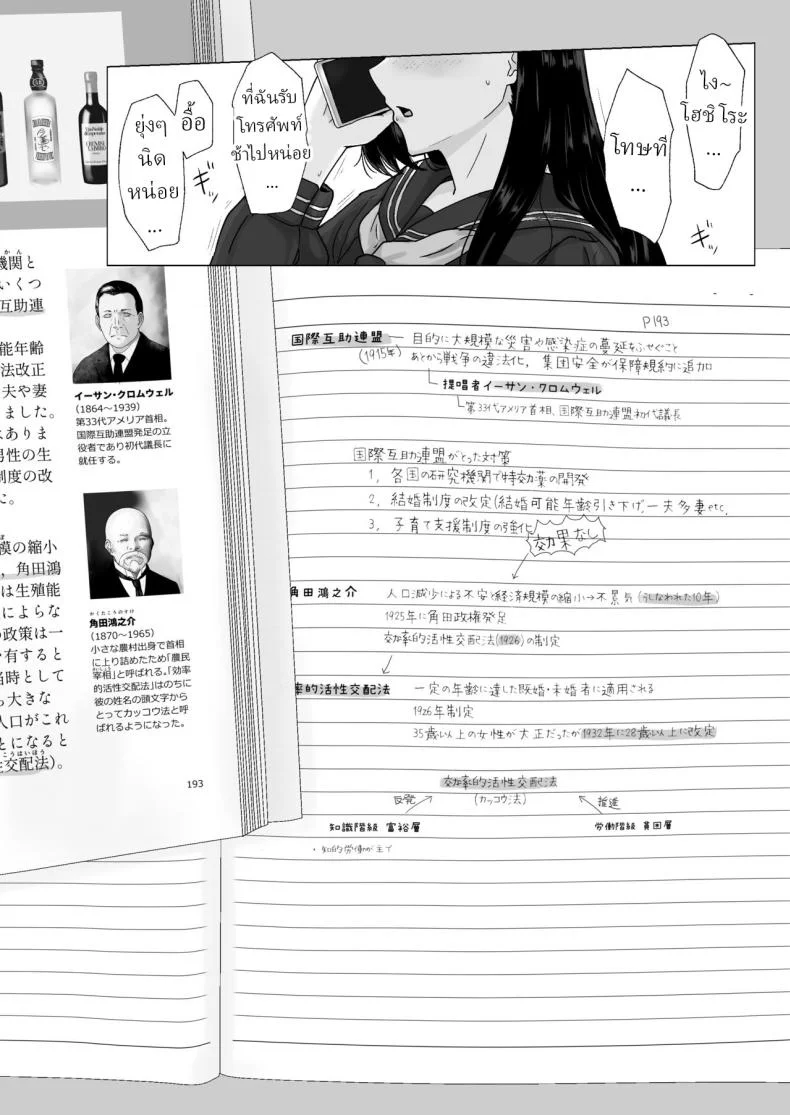 ไง~
โฮชิโระ
...
โทษที
...
ที่ฉันรับ
โทรศัพท์
ช้าไปหน่อย
...
อื้อ
ยุ่งๆ
นิด
หน่อย
...
ギッ
ギッ
機関と
いくつ
互助連
能年齢
法改正
夫や妻
ました。
はありま
男性の生
制度の改
た。
模の縮小
、角田鴻
は生殖能
によらな
の政策は一
を有すると
当時として
も大きな
人口がこれ
とになると
性交配法)。
こうはいほう
イーサン・クロムウェル
(1864〜1939)
第33代アメリア首相。
国際互助連盟発足の立
役者であり初代議長に
就任する。
かくたこうのすけ
角田鴻之介
(1870〜1965)
小さな農村出身で首相
に上り詰めたため「農民
宰相」と呼ばれる。「効率
的活性交配法」はのちに
彼の姓名の頭文字から
とってカッコウ法と呼
ばれるようになった。
193
P193
国際互助連盟 ― 目的に大規模な災害や感染症の蔓延をふせぐこと
(1915年) あとから戦争の違法化, 集団安全が保障規約に追加
提唱者イーサン・クロムウェル
第33代アメリア首相、国際互助連盟初代議長
国際互助連盟がとった対策
1, 各国の研究機関で特効薬の開発
2, 結婚制度の改定(結婚可能年齢引き下げ,一夫多妻etc,
3, 子育て支援制度の強化
効果なし
角田鴻之介 人口減少による不安と経済規模の縮小→不景気(うしなわれた10年)
1925年に角田政権発足
効率的活性交配法(1926)の制定
率的活性交配法 一定の年齢に達した既婚・未婚者に適用される
1926年制定
35歳以上の女性が大正だったが1932年に28歳以上に改定
効率的活性交配法
(カッコウ法)
反発
推進
知識階級 富裕層
労働階級 貧困層
・知的労働が主で